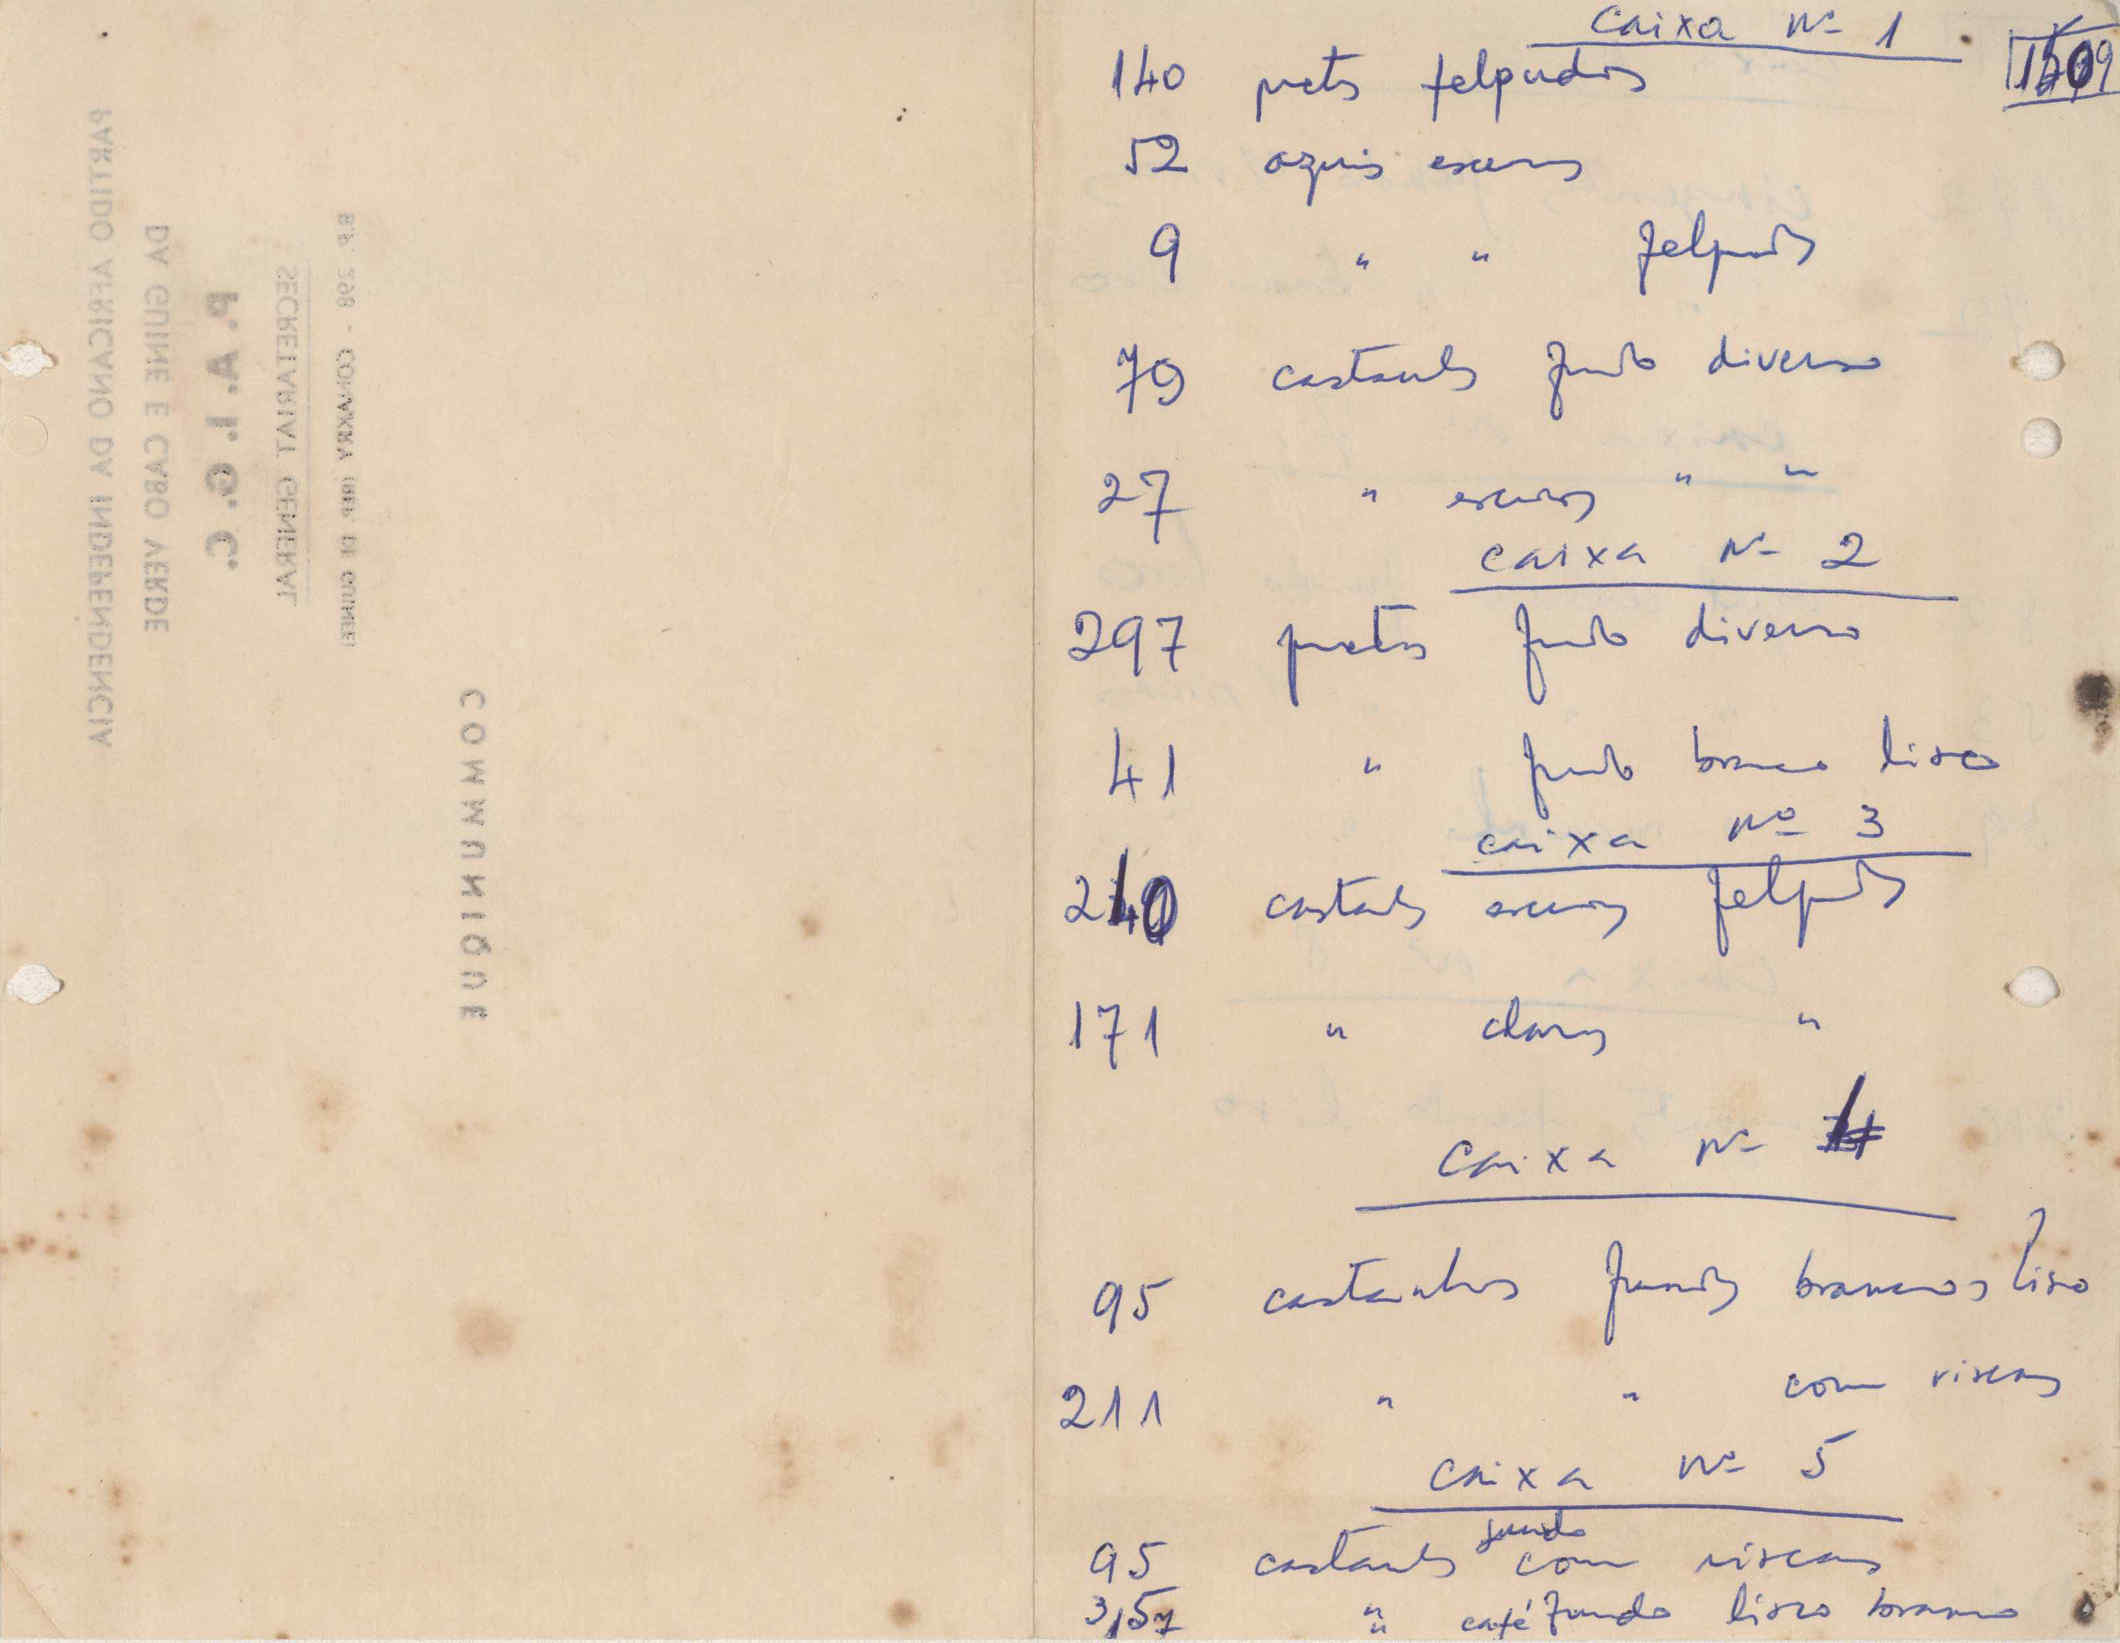 PARTIDO AFRICANO DA INDEPENDENCIA
DA GUINE E CABO VERDE
P. A. I. G. C.
SECRETARIAT GENERAL
BP. 298 - CONAKRY REP. DE GUINEE
COMMUNIQUE
caixa Nº 1
140 pretos felpudos
52 azuis escuros
9 " " felpudos
79 castanhos fundo diverso
27 " escuros " "
caixa Nº 2
297 pretos fundo diverso
41 " fundo branco liso
caixa Nº 3
240 castanhos escuros felpudos
171 " claros "
Caixa Nº 4
95 castanhos fundos brancos liso
211 " " com riscas
Caixa Nº 5
95 castanhos fundo com riscas
" café fundo liso branco